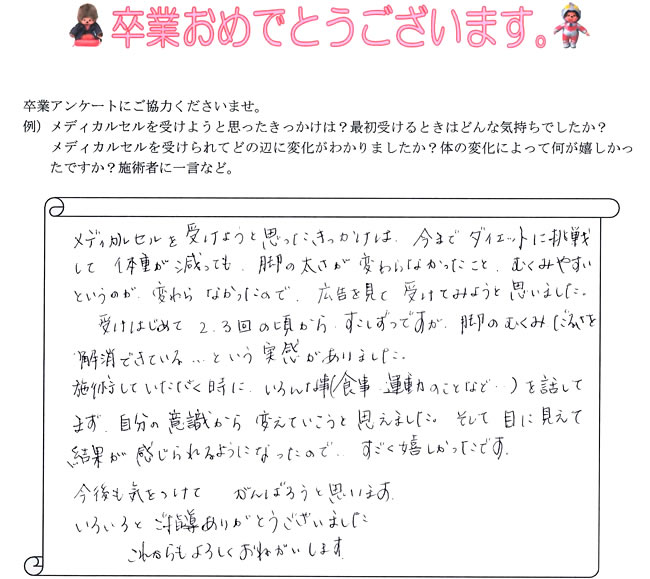 卒業おめでとうございます。
卒業アンケートにご協力くださいませ。
例）メディカルセルを受けようと思ったきっかけは？最初受けるときはどんな気持ちでしたか？
メディカルセルを受けられてどの辺に変化がわかりましたか？体の変化によって何が嬉しかっ
たですか？施術者に一言など。
メディカルセルを受けようと思ったきっかけは、今までダイエットに挑戦
して体重が減っても、脚の太さが変わらなかったこと、むくみやすい
というのが、変わらなかったので、広告を見て受けてみようと思いました。
受けはじめて2.3回の頃から、すこしずつですが、脚のむくみ だるさを
解消できている…という実感がありました。
施術していただく時に、いろんな事(食事・運動のことなど…)を話して
まず、自分の意識から変えていこうと思えました。そして目に見えて
結果が感じられるようになったので、すごく嬉しかったです。
今後も気をつけて がんばろうと思います。
いろいろとご指導ありがとうございました
これからもよろしくおねがいします